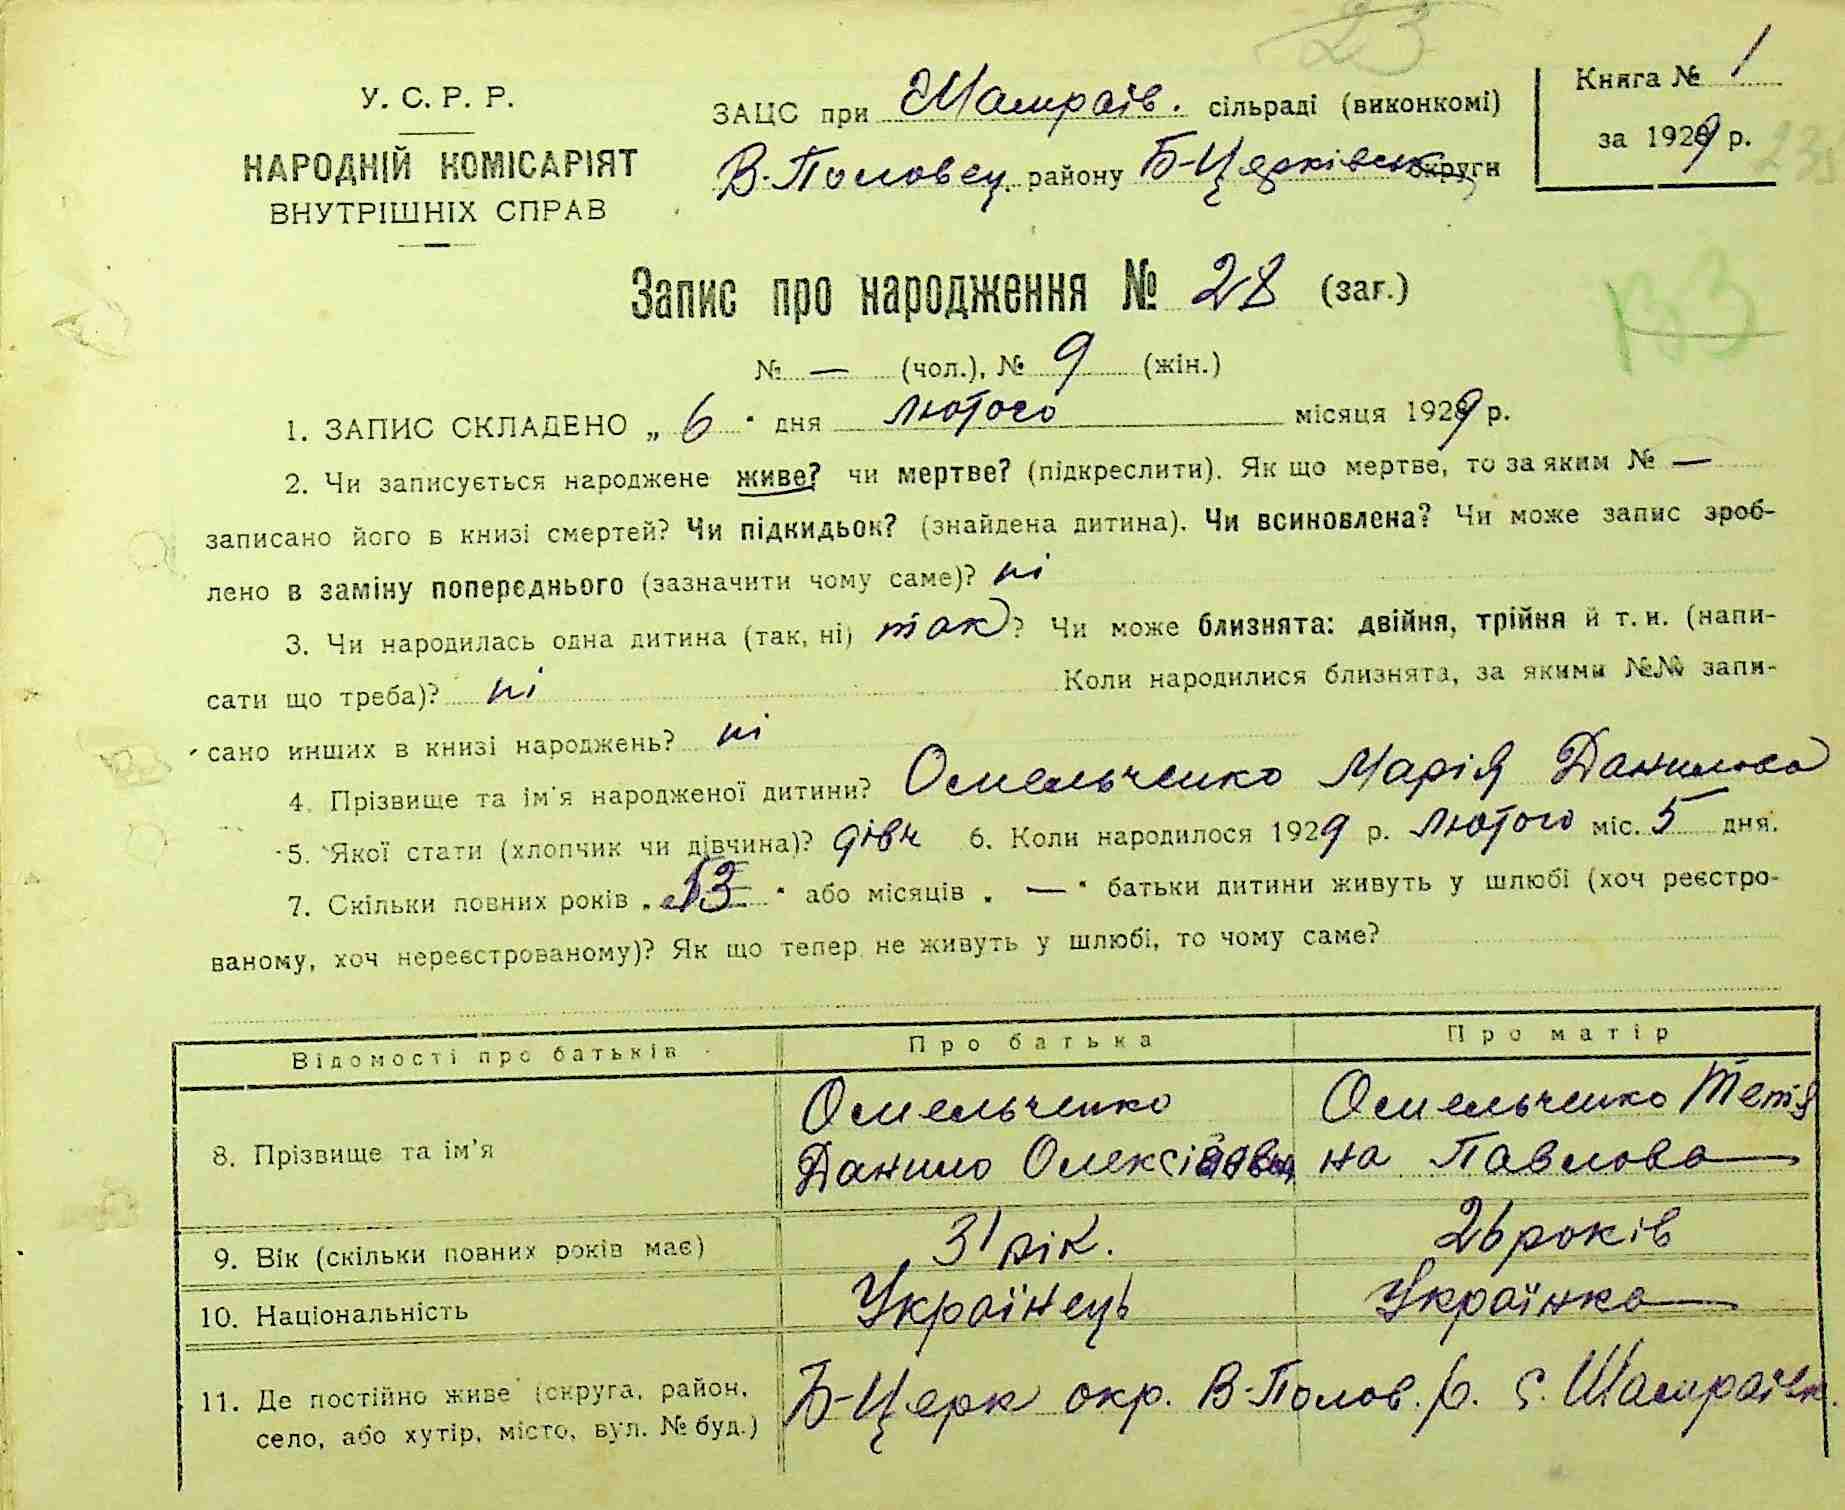 23
У. С. Р. Р.
НАРОДНІЙ КОМІСАРІЯТ
ВНУТРІШНІХ СПРАВ
ЗАЦС при Шамраїв. сільраді (виконкомі)
В.-Половец. району Б-Церківськ округи
Книга № 1
за 1929 р.
Запис про народження № 28 (заг.)
133
№ — (чол.), № 9 (жін.)
1. ЗАПИС СКЛАДЕНО „ 6 " дня лютого місяця 1929 р.
2. Чи записується народжене живе? чи мертве? (підкреслити). Як що мертве, то за яким № —
записано його в книзі смертей? Чи підкидьок? (знайдена дитина). Чи всиновлена? Чи може запис зроб-
лено в заміну попереднього (зазначити чому саме)? ні
3. Чи народилась одна дитина (так, ні) так? Чи може близнята: двійня, трійня й т. и. (напи-
сати що треба)? ні Коли народилися близнята, за якими №№ запи-
сано инших в книзі народжень? ні
4. Прізвище та ім'я народженої дитини? Омельченко Марія Данилова
5. Якої стати (хлопчик чи дівчина)? дівч 6. Коли народилося 1929 р. лютого міс. 5 дня.
7. Скільки повних років „ 13 " або місяців „ — " батьки дитини живуть у шлюбі (хоч реєстро-
ваному, хоч нереєстрованому)? Як що тепер не живуть у шлюбі, то чому саме?
Відомості про батьків Про батька Про матір
8. Прізвище та ім'я
Омельченко
Данило Олексі
Омельченко Тетя
на Павлова
9. Вік (скільки повних років має) 31 рік. 26 років
10. Національність Українець Українка
11. Де постійно живе (округа, район,
село, або хутір, місто, вул. № буд.)
Б-Церк окр. В-Полов. р. с. Шамраївк.